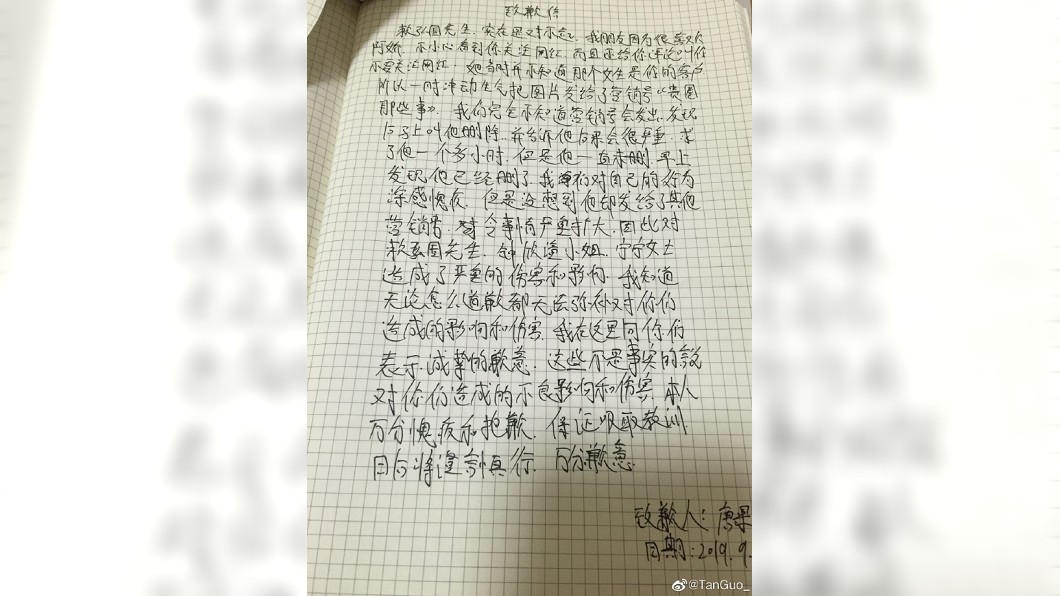 致歉信
赖弘国先生，实在是对不起，我朋友因为很喜欢
阿娇，不小心看到你关注网红，而且还给你评论叫你
不要关注网红，她当时并不知道那个女生是你的客户
所以一时冲动生气把图片发给了营销号《贵圈
那些事》，我们完全不知道营销号会发出，发现
后马上叫他删除，并告诉他后果会很严重，求
了他一个多小时，但是他一直未删，早上
发现他已经删了，我们对自己的行为
深感愧疚，但是没想到他却发给了其他
营销号，令事情严重扩大，因此对
赖弘国先生，钟欣潼小姐，宁宁女士
造成了严重的伤害和影响，我知道
无论怎么道歉都无法弥补对你们
造成的影响和伤害，我在这里向你们
表示诚挚的歉意，这些不是事实的说
对你们造成的不良影响和伤害，本人
万分愧疚和抱歉，保证吸取教训
日后将谨言慎行，万分歉意
致歉人：唐果
日期：2019.9.
@TanGuo_